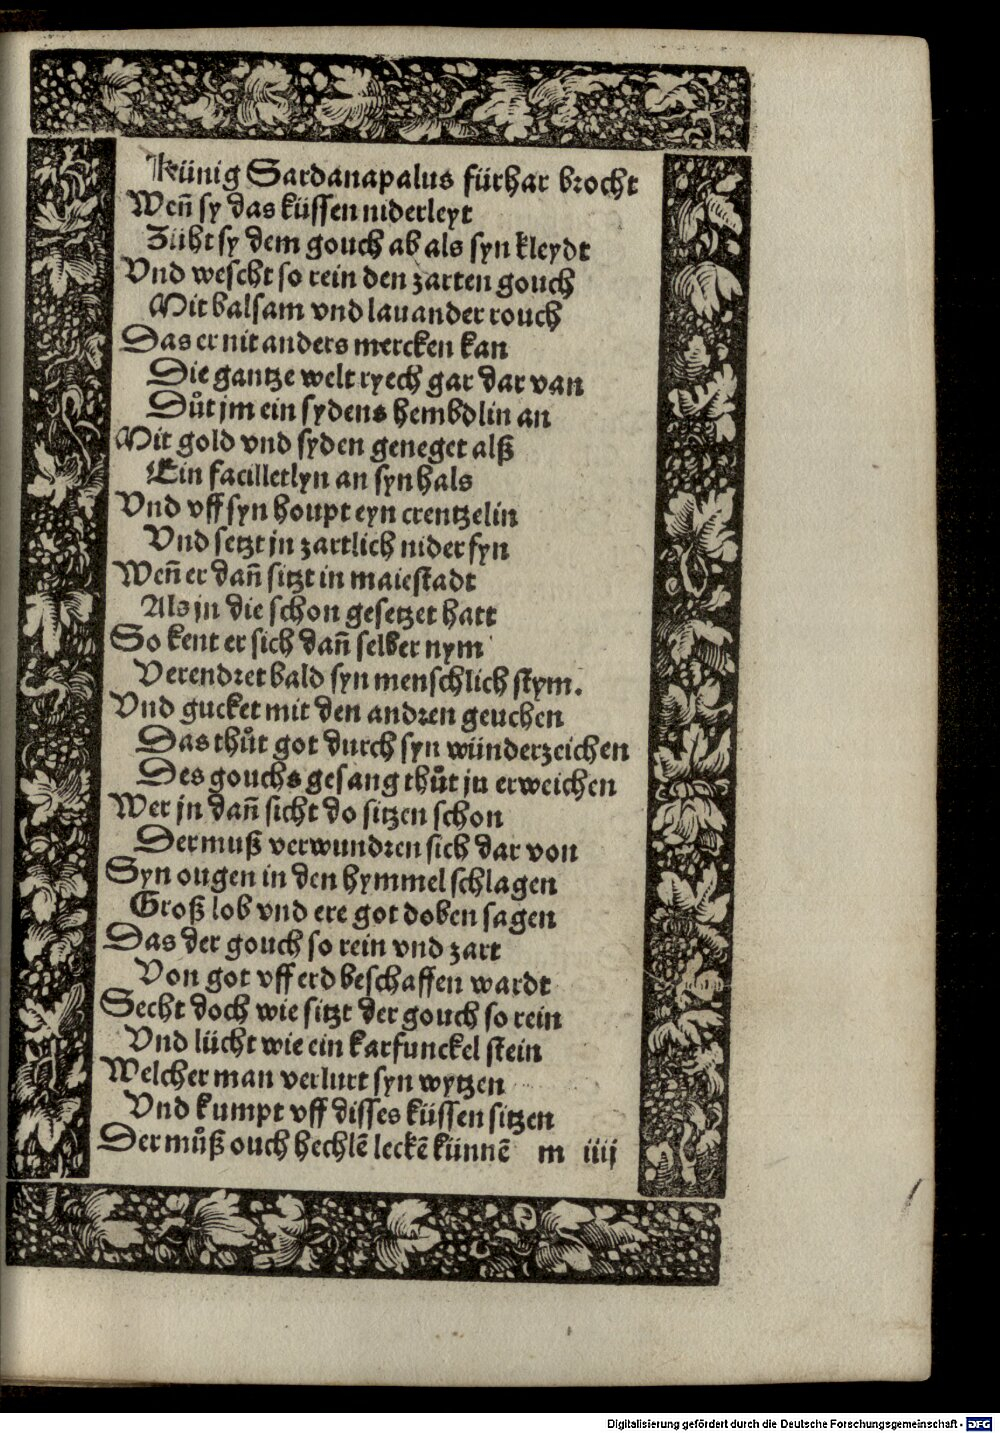 Künig Sardanapalus fürhar brocht
Weñ sy das küssen niderleyt
Züht sy dem gouch ab als syn kleydt
Vnd wescht so rein den zarten gouch
Mit balsam vnd lauander rouch
Das er nit anders mercken kan
Die gantze welt ryech gar dar van
Důt jm ein sydens hembdlin an
Mit gold vnd syden geneget alß
Ein facilletlyn an syn hals
Vnd vff syn houpt eyn crentzelin
Vnd setzt jn zartlich nider fyn
Weñ er dañ sitzt in maiestadt
Als jn die schon gesetzet hatt
So kent er sich dañ selber nym
Verendret bald syn menschlich stym.
Vnd gucket mit den andren geuchen
Das thůt got durch syn wünderzeichen
Des gouchs gesang thůt ju erweichen
Wer jn dañ sicht do sitzen schon
Der muß verwundren sich dar von
Syn ougen in den hymmel schlagen
Groß lob vnd ere got doben sagen
Das der gouch so rein vnd zart
Von got vff erd beschaffen wardt
Secht doch wie sitzt der gouch so rein
Vnd lücht wie ein karfunckel stein
Welcher man verlurt syn wytzen
Vnd kumpt vff disses küssen sitzen
Der můß ouch hechlẽ leckẽ künnẽ m iiij
Digitalisierung gefördert durch die Deutsche Forschungsgemeinschaft - DFG